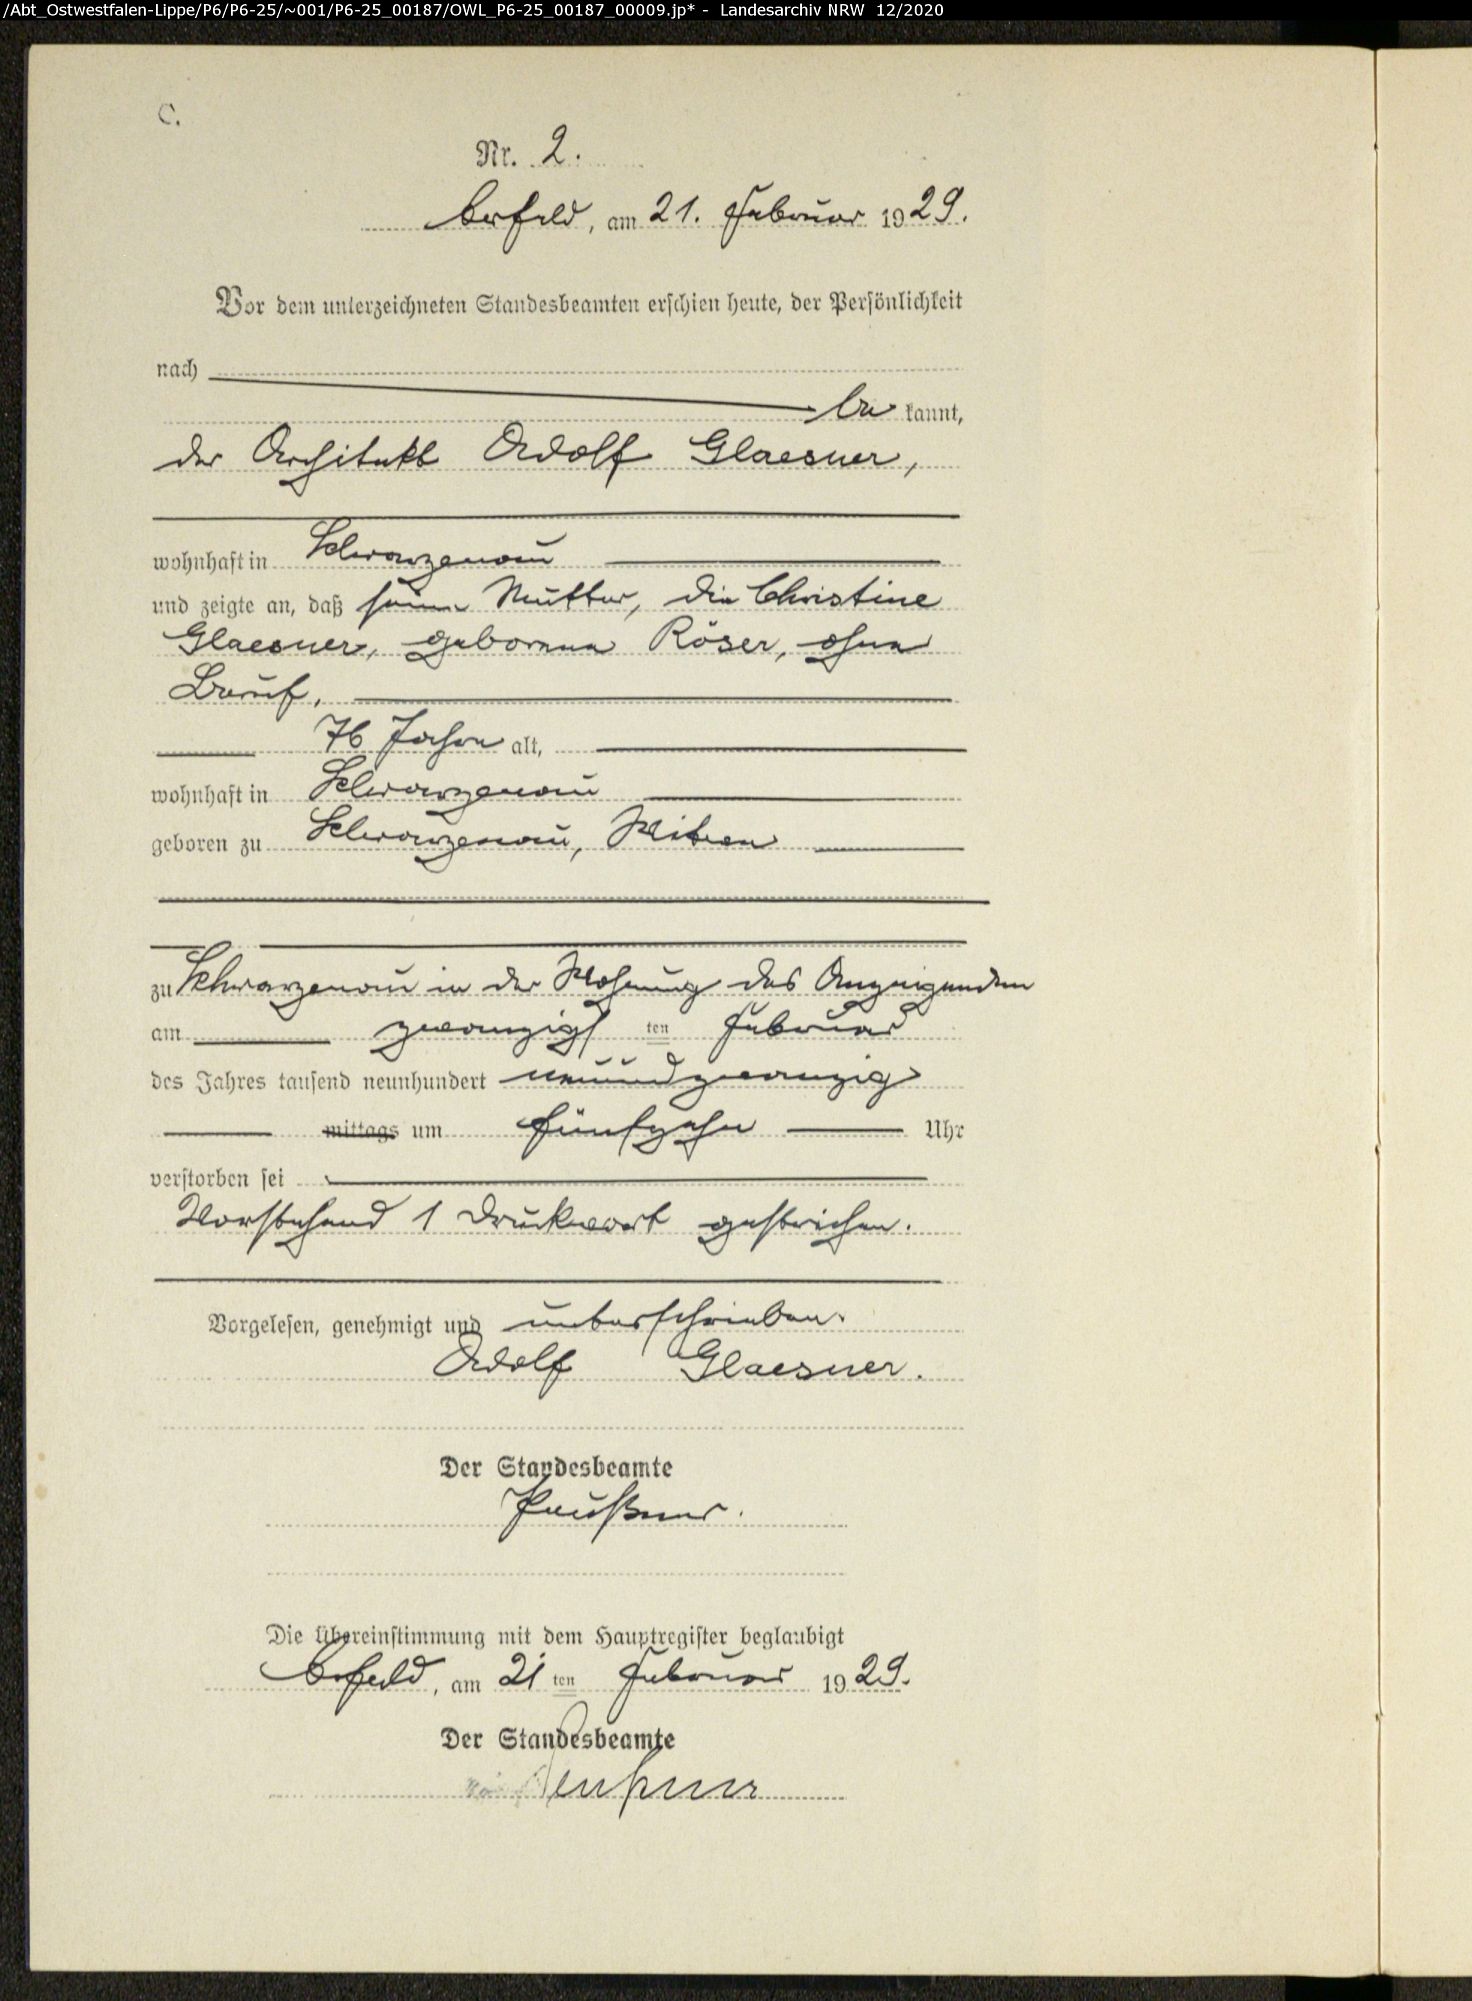 /Abt_Ostwestfalen-Lippe/P6/P6-25/~001/P6-25_00187/OWL_P6-25_00187_00009.jp* - Landesarchiv NRW 12/2020
C.
Nr. 2.
Berfeld, am 21. Februar 1929.
Vor dem unterzeichneten Standesbeamten erschien heute, der Persönlichkeit
nach
be kannt,
der Architekt Adolf Glaesner,
wohnhaft in Schwarzenau
und zeigte an, daß seine Mutter, die Christine
Glaesner, geborene Röser, ohne
Beruf,
76 Jahre alt,
wohnhaft in Schwarzenau
geboren zu Schwarzenau, Witwe
zu Schwarzenau in der Wohnung des Anzeigenden
am zwanzigsten Februar
des Jahres tausend neunhundert neunundzwanzig
mittags um fünfzehn Uhr
verstorben sei
Vorstehend 1 Druckwort gestrichen.
Vorgelesen, genehmigt und unterschrieben.
Adolf Glaesner.
Der Standesbeamte
Die Übereinstimmung mit dem Hauptregister beglaubigt
Berfeld, am 21 ten Februar 1929.
Der Standesbeamte